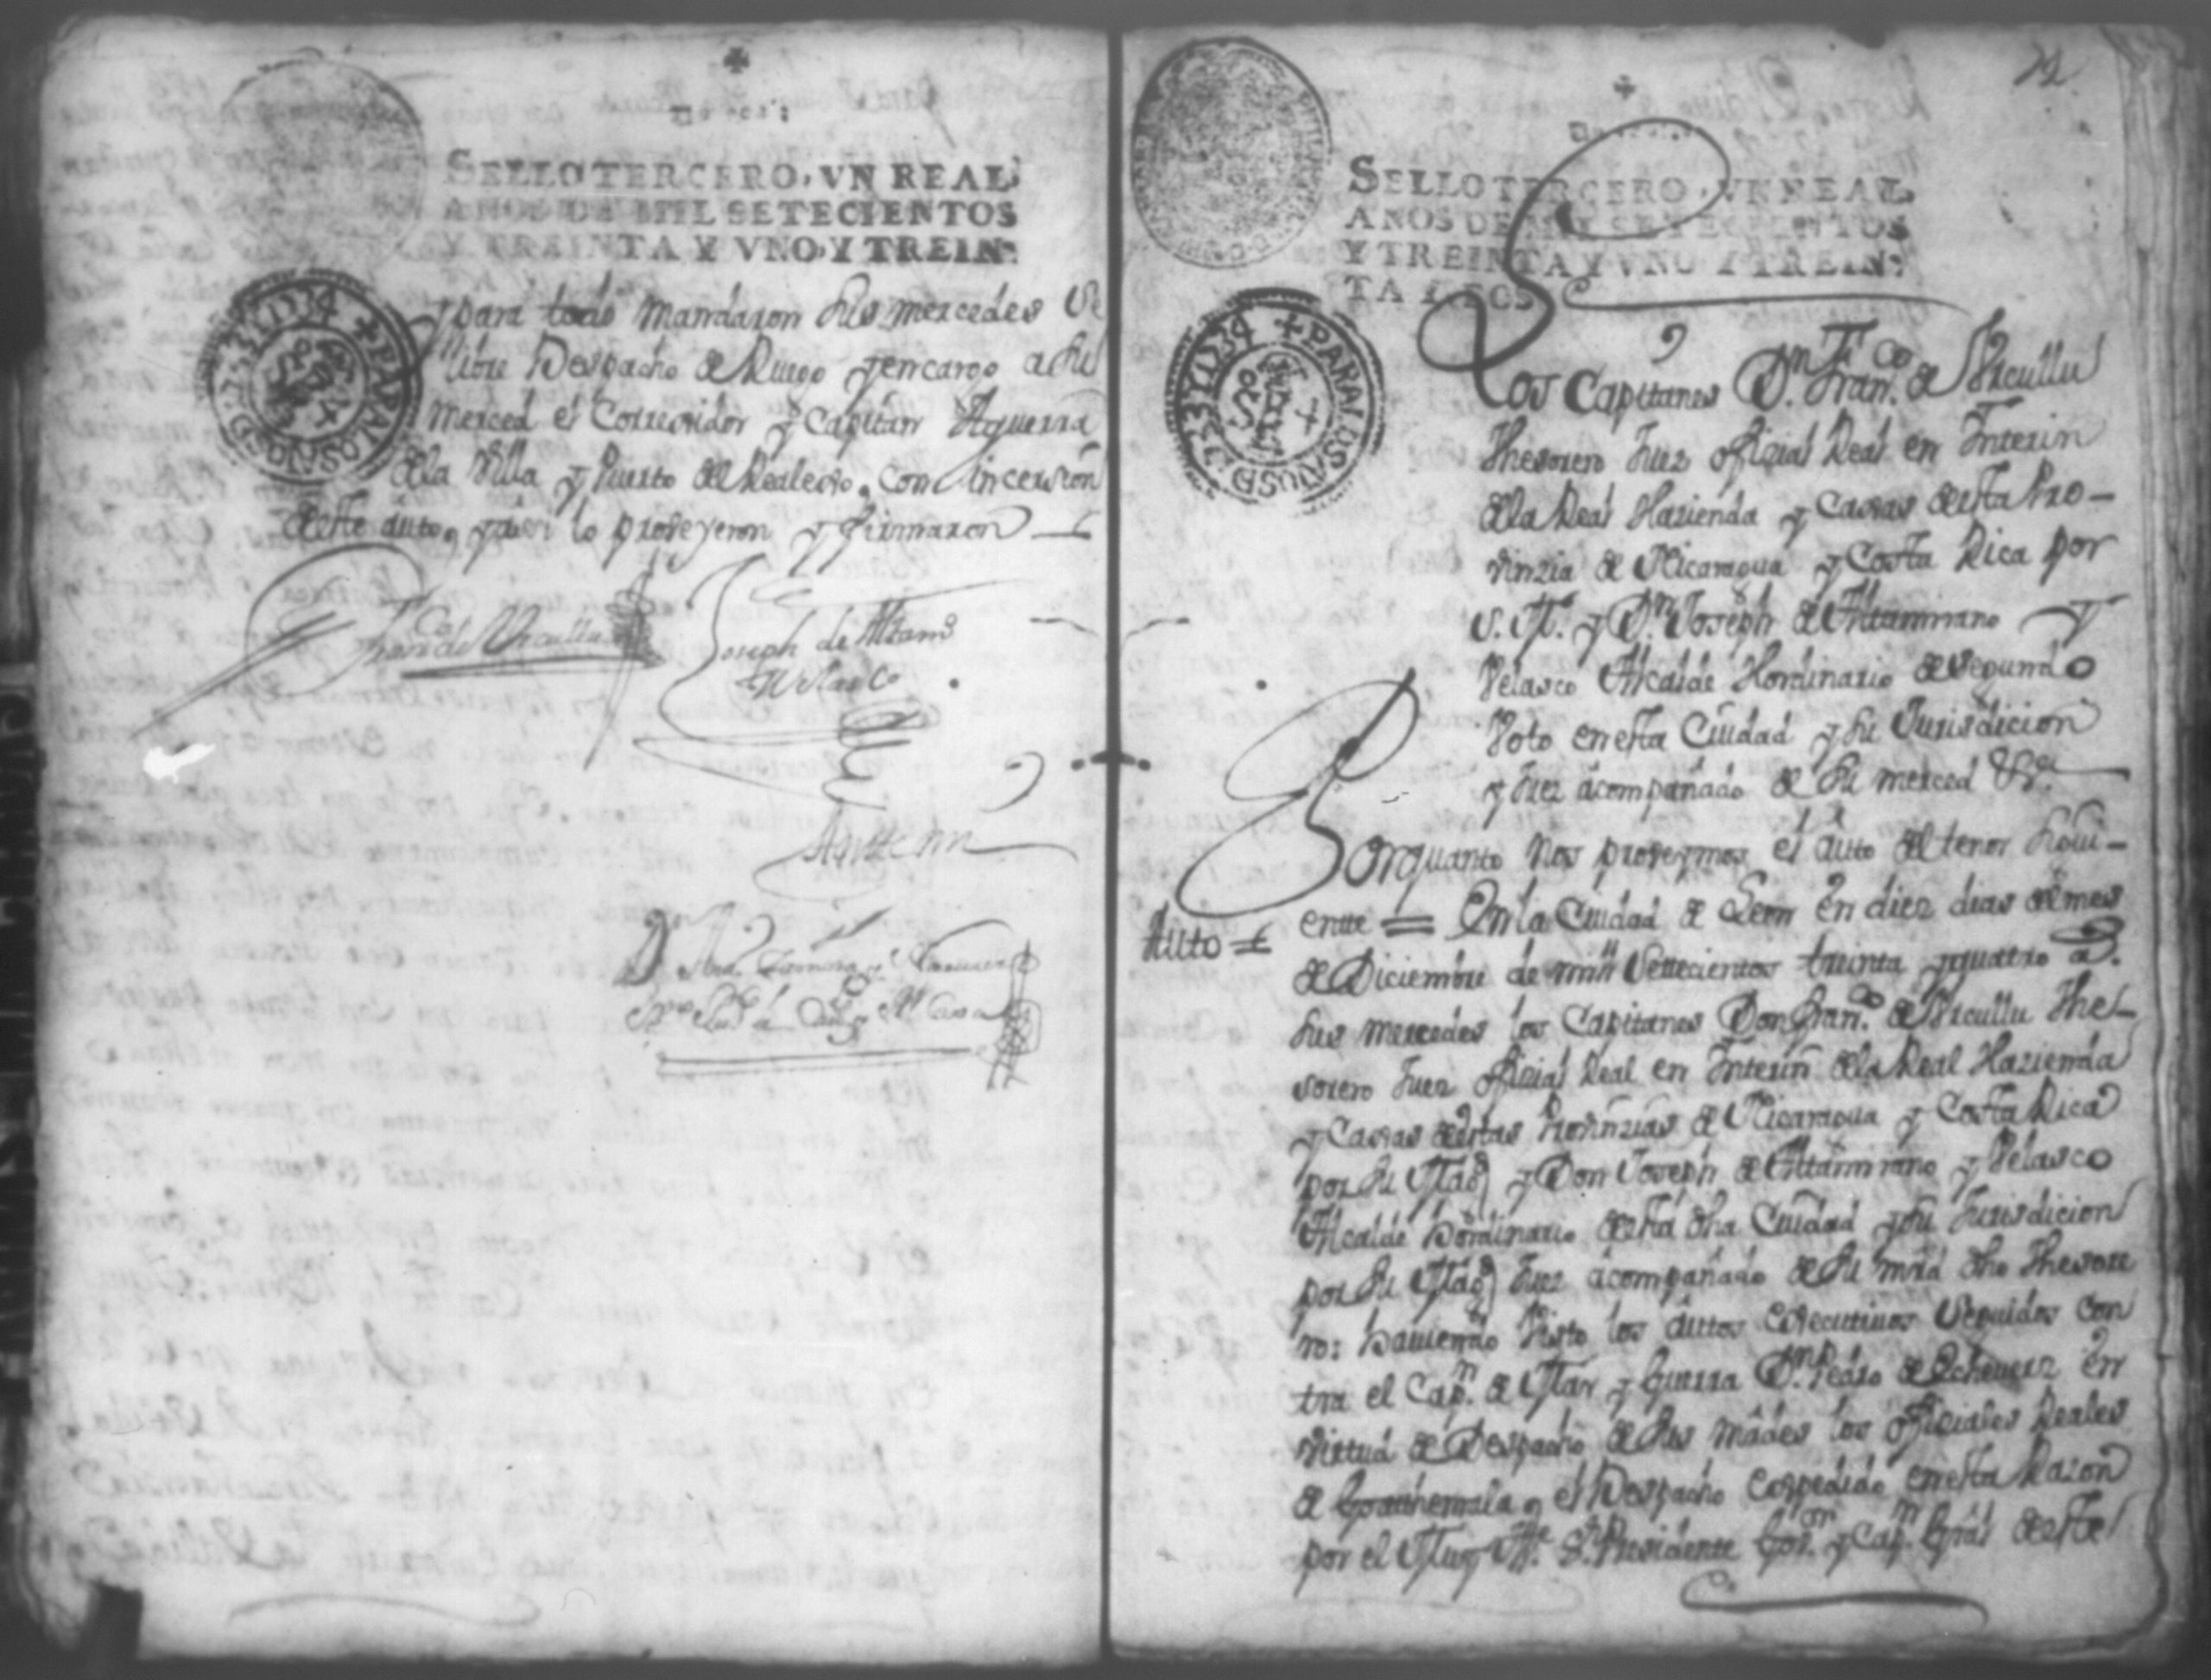 SELLO TERCERO, VN REAL,
AÑOS DE MIL SETECIENTOS
Y TREINTA Y VNO, Y TREIN-
PARA LOS AÑOS D 1733 Y 1734
y para todo mandaron sus mercedes se
libre Despacho de Ruego y encargo a su
merced el Correxidor y Capitan Aguerra
dela Villa y Puerto del Realexo, con incersion
deste auto, y assi lo proveyeron y firmaron
Fran.co de Vrcullu
Joseph de Altam.o
y Velasco
Ante mi
72
SELLO TERCERO, VN REAL,
AÑOS DE MIL SETECIENTOS
Y TREINTA Y VNO Y TREIN-
TA Y DOS
PARA LOS AÑOS D 1733 Y 1734
Los Capitanes D.n Fran.co de Vrcullu
Thesorero Juez oficial Real en Interin
dela Real Hazienda y Caxas desta Pro-
vinzia de Nicaragua y Costa Rica por
S. M. y D.n Joseph de Altamirano y
Velasco Alcalde Hordinario de segundo
Voto en esta Ciudad y su Jurisdicion
y Juez acompañado de su merced &.a
Por quanto Nos proveymos el auto del tenor sigui-
ente = En la Ciudad de Leon en diez dias del mes
Auto =
de Diciembre de mill settecientos treinta y quatro a.s
sus mercedes los Capitanes Don Fran.co de Vrcullu The-
sorero Juez oficial Real en Interin dela Real Hazienda
y Caxas destas Provinzias de Nicaragua y Costa Rica
por su Mag.d y Don Joseph de Altamirano y Velasco
Alcalde hordinario desta dha Ciudad y su Jurisdicion
por su Mag.d Juez acompañado de su mrd dho Thesore
ro: haviendo Visto los autos executivos seguidos con
tra el Cap.n de Mar y Guerra D.n Pedro de Echeverz en
virtud de Despacho de sus mrdes los oficiales Reales
de Goathemala, y el Despacho expedido en esta Razon
por el Muy Ill.e S.r Presidente Gov.or y Cap.n Gral deste